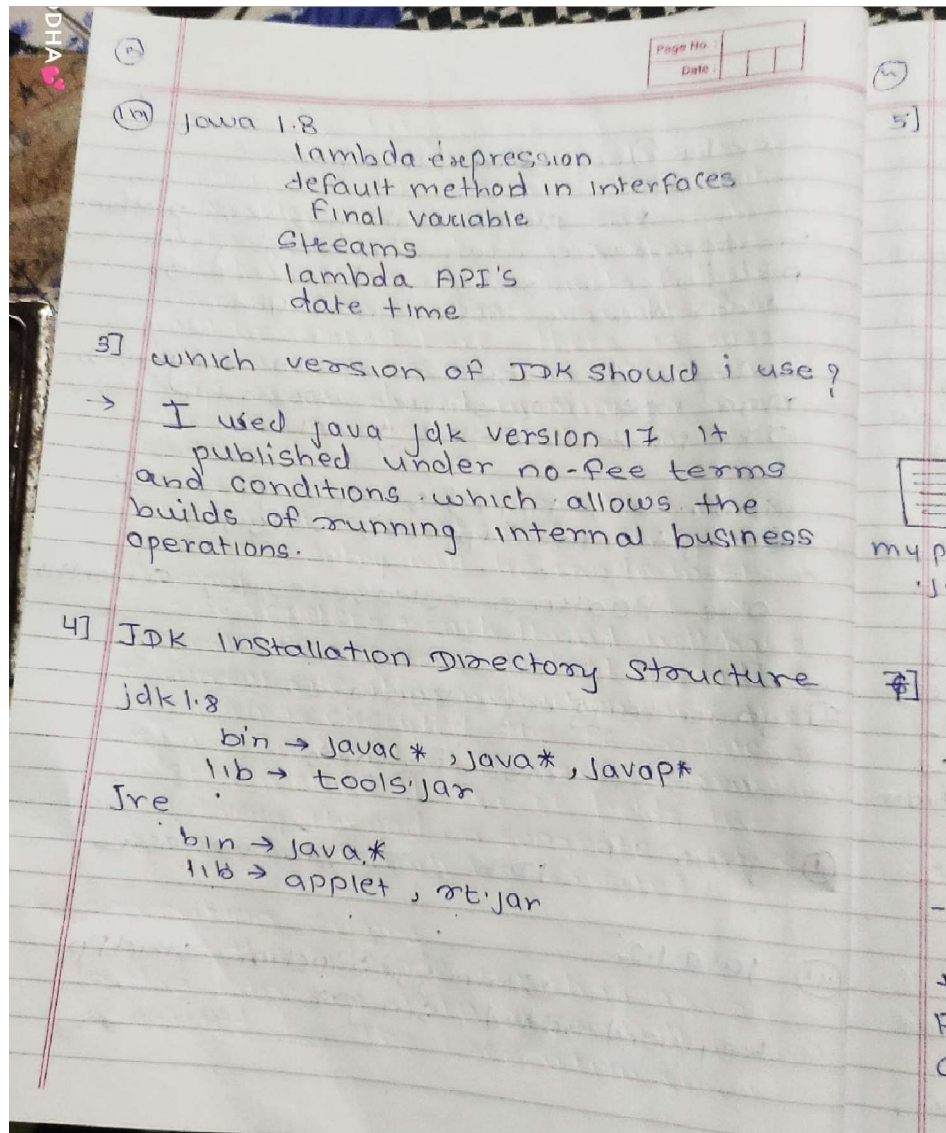 DHA💕
Page No.:
Date:
Java 1.8
lambda expression
default method in interfaces
final variable
Streams
lambda API's
date time
3] which version of JDK should i use ?
→ I used java jdk version 17 It
published under no-fee terms
and conditions which allows the
builds of running internal business
operations.
4] JDK Installation Directory Structure
jdk 1.8
bin → javac * , java* , javap*
lib → tools.jar
Jre
bin → java.*
lib → applet , rt.jar
5]
my p